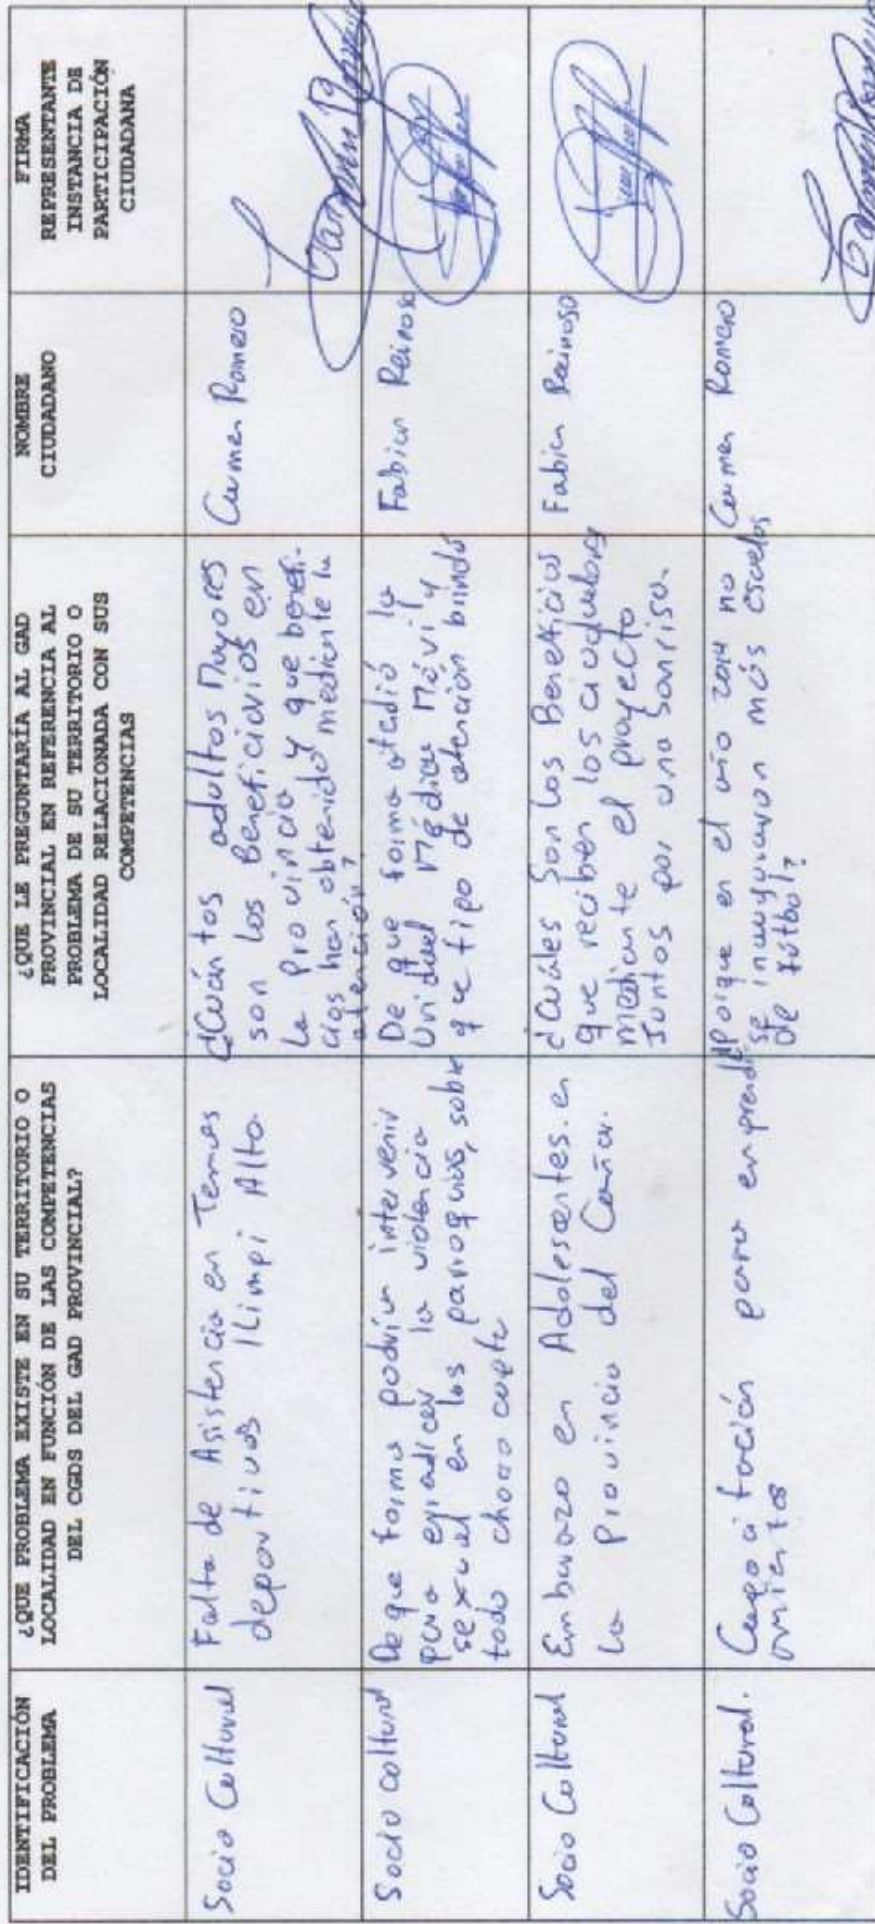 IDENTIFICACIÓN
DEL PROBLEMA
¿QUE PROBLEMA EXISTE EN SU TERRITORIO O
LOCALIDAD EN FUNCIÓN DE LAS COMPETENCIAS
DEL CGDS DEL GAD PROVINCIAL?
¿QUE LE PREGUNTARÍA AL GAD
PROVINCIAL EN REFERENCIA AL
PROBLEMA DE SU TERRITORIO O
LOCALIDAD RELACIONADA CON SUS
COMPETENCIAS
NOMBRE
CIUDADANO
FIRMA
REPRESENTANTE
INSTANCIA DE
PARTICIPACIÓN
CIUDADANA
Socio Cultural
Falta de Asistencia en Temas
deportivos Ilimpi Alto.
¿Cuántos adultos Mayores
son los Beneficiarios en
La Provincia y que benefi-
cios han obtenido mediante la
atención?
Carmen Romero
Socio cultural
De que forma podría intervenir
para erradicar la violencia
sexual en las parroquias, sobre
todo chorocopte
De que forma atedió la
Unidad Médica Móvil y
que tipo de atención brindó
Fabian Reinoso
Socio Cultural
Embarazo en Adolescentes. en
la Provincia del Cañar.
¿Cuáles son los Beneficios
que reciben los ciudadanos
mediante el proyecto
Juntos por una Sonrisa.
Fabian Reinoso
Socio Cultural.
Capacitación para emprendi-
mientos
¿Porque en el año 2014 no
se inauguraron más escuelas
de fútbol?
Carmen Romero